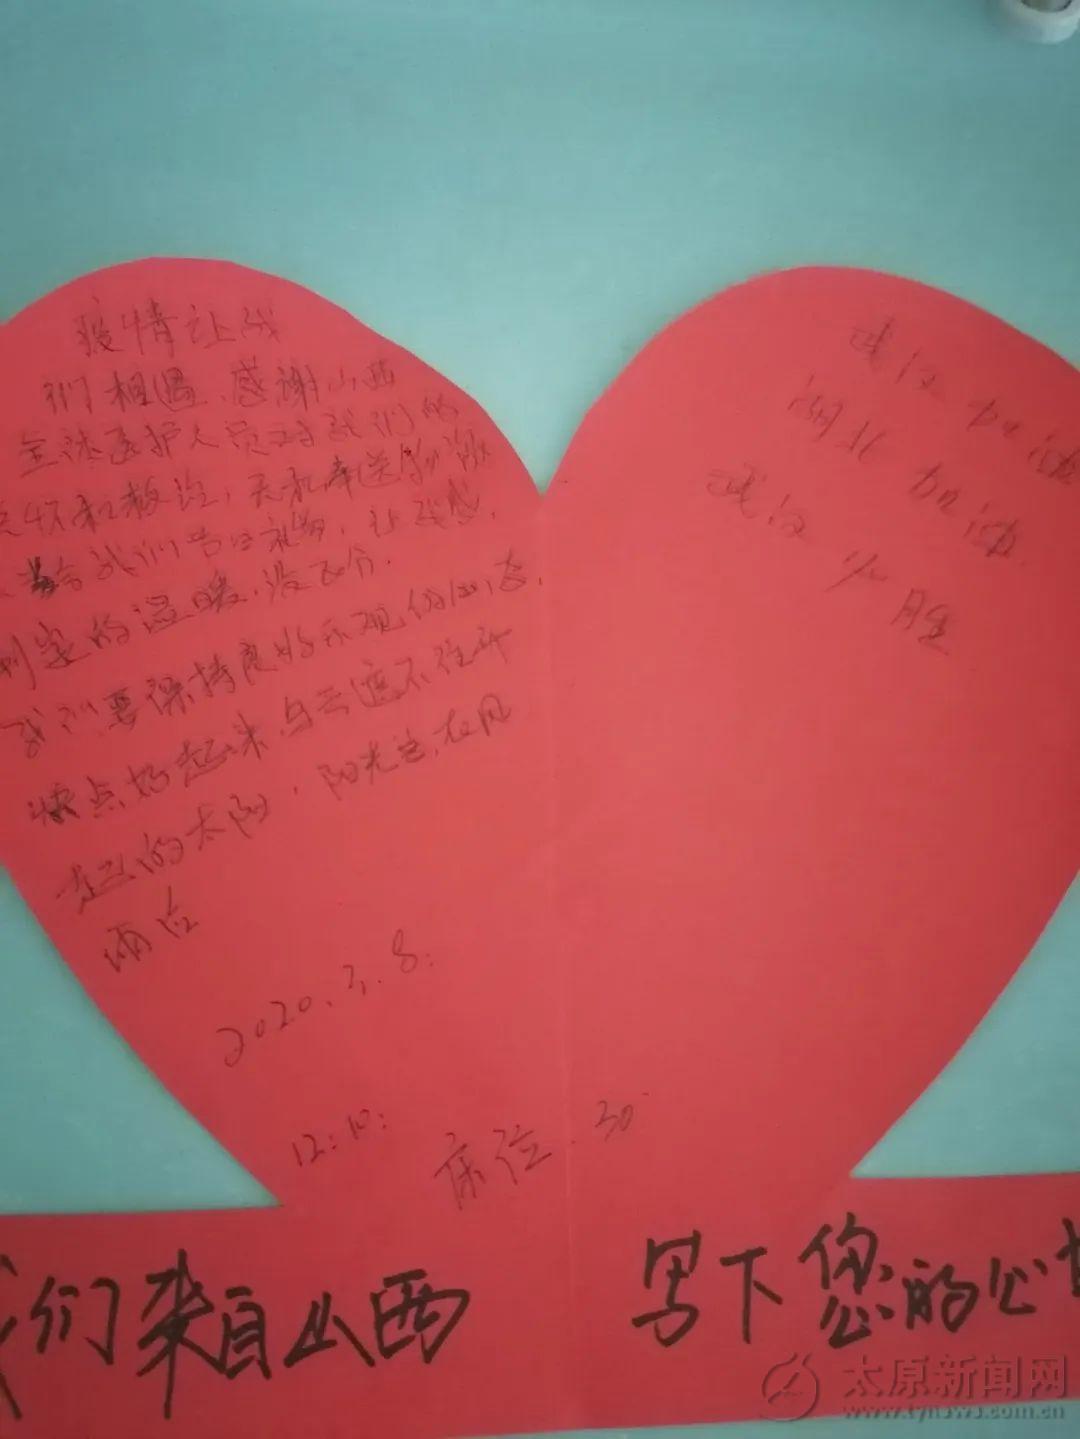 疫情让我
们相遇、感谢山西
全体医护人员对我们的
关怀和救治,
给我们节日礼物,让我感
到家的温暖,
我们要保持良好乐观的心态,
快点好起来,乌云遮不住升
起的太阳,阳光总在风
雨后
2020.3.8.
12:10:
床位.30
武汉加油
湖北加油
武汉必胜
们来自山西
写下您的心
太原新闻网
www.tynews.com.cn